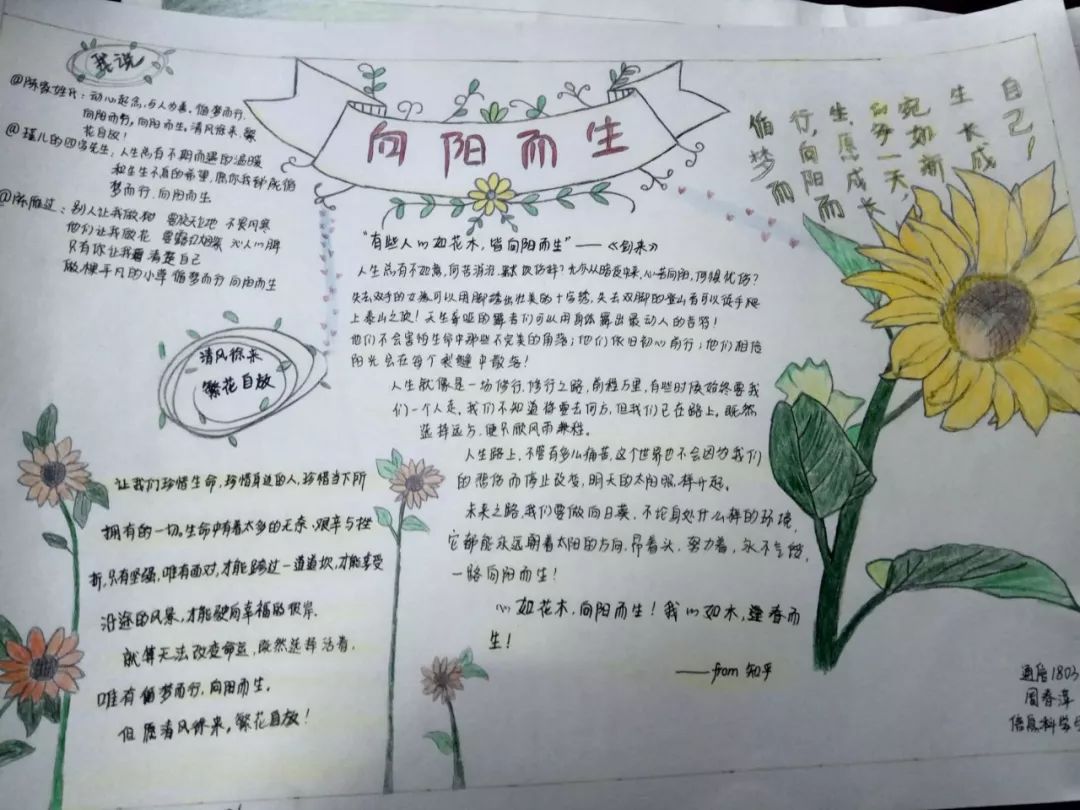 我说
@陈家姓卡：动心起念,与人为善,偱梦而行.
向阳而努,向阳而生,清风徐来,繁
花自放！
@瑾儿的四宫先生，人生总有不期而遇的温暖
和生生不息的希望,愿你我都成偱
梦而行.向阳而生
@陈雁过：别人让我做树 要凌天立地 不畏风寒
他们让我做花 要露红烟翠 沁人心脾
只有你让我看清楚自己
做,棵平凡的小草 偱梦而行 向阳而生
向阳而生
偱梦而
行,向阳而
生,愿成长
的每一天,
宛如新
生 长成
自己！
清风徐来
繁花自放
"有些人心如花木,皆向阳而生"——《剑来》
人生总有不如意,何苦泪滔,默默伤辞？尤尔从暗夜中来,心若向阳,何惧忧伤？
失去双手的女孩可以用脚踏出壮美的十字绣,失去双脚的登山者可以徒手爬
上泰山之顶！天生聋哑的舞者们可以用身体舞出最动人的音符！
他们不会害怕生命中那些不完美的角落；他们依旧初心前行；他们相信
阳光会在每个裂缝中散落！
人生就像是一场修行,修行之路,前程万里,有些时候始终要我
们一个人走,我们不知道将要去何方,但我们已在路上。既然
选择远方,便只顾风雨兼程。
人生路上,不管有多么痛苦,这个世界也不会因为我们
的悲伤而停止改变,明天的太阳照样升起。
未来之路,我们要做向日葵,不论身处什么样的环境,
它都能永远朝着太阳的方向,昂着头,努力着,永不气馁,
一路向阳而生！
心如花木,向阳而生！我心如木,逢春而
生！
——from 知乎
让我们珍惜生命,珍惜身边的人,珍惜当下所
拥有的一切。生命中有着太多的无奈、艰辛与挫
折,只有坚强,唯有面对,才能跨过一道道坎,才能享受
沿途的风景,才能驶向幸福的彼岸.
就算无法改变命运,既然选择活着,
唯有偱梦而行,向阳而生。
但愿清风徐来,繁花自放！
通信1803
周春萍
信息科学与